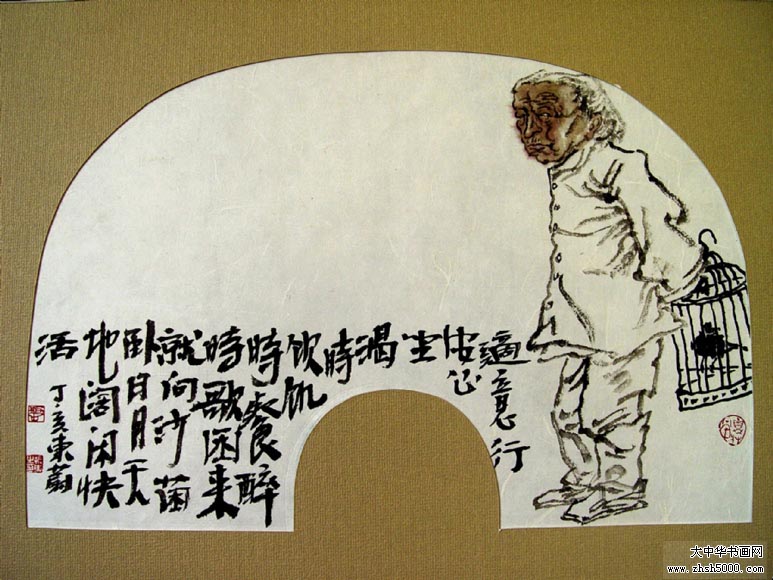 適意行
安心
坐
渴
時
饮饥
時餐醉
時歌困来
就向沙茵
卧日月长天
地阔闲快
活
丁亥東蔚
大中华书画网
www.zhsh5000.com